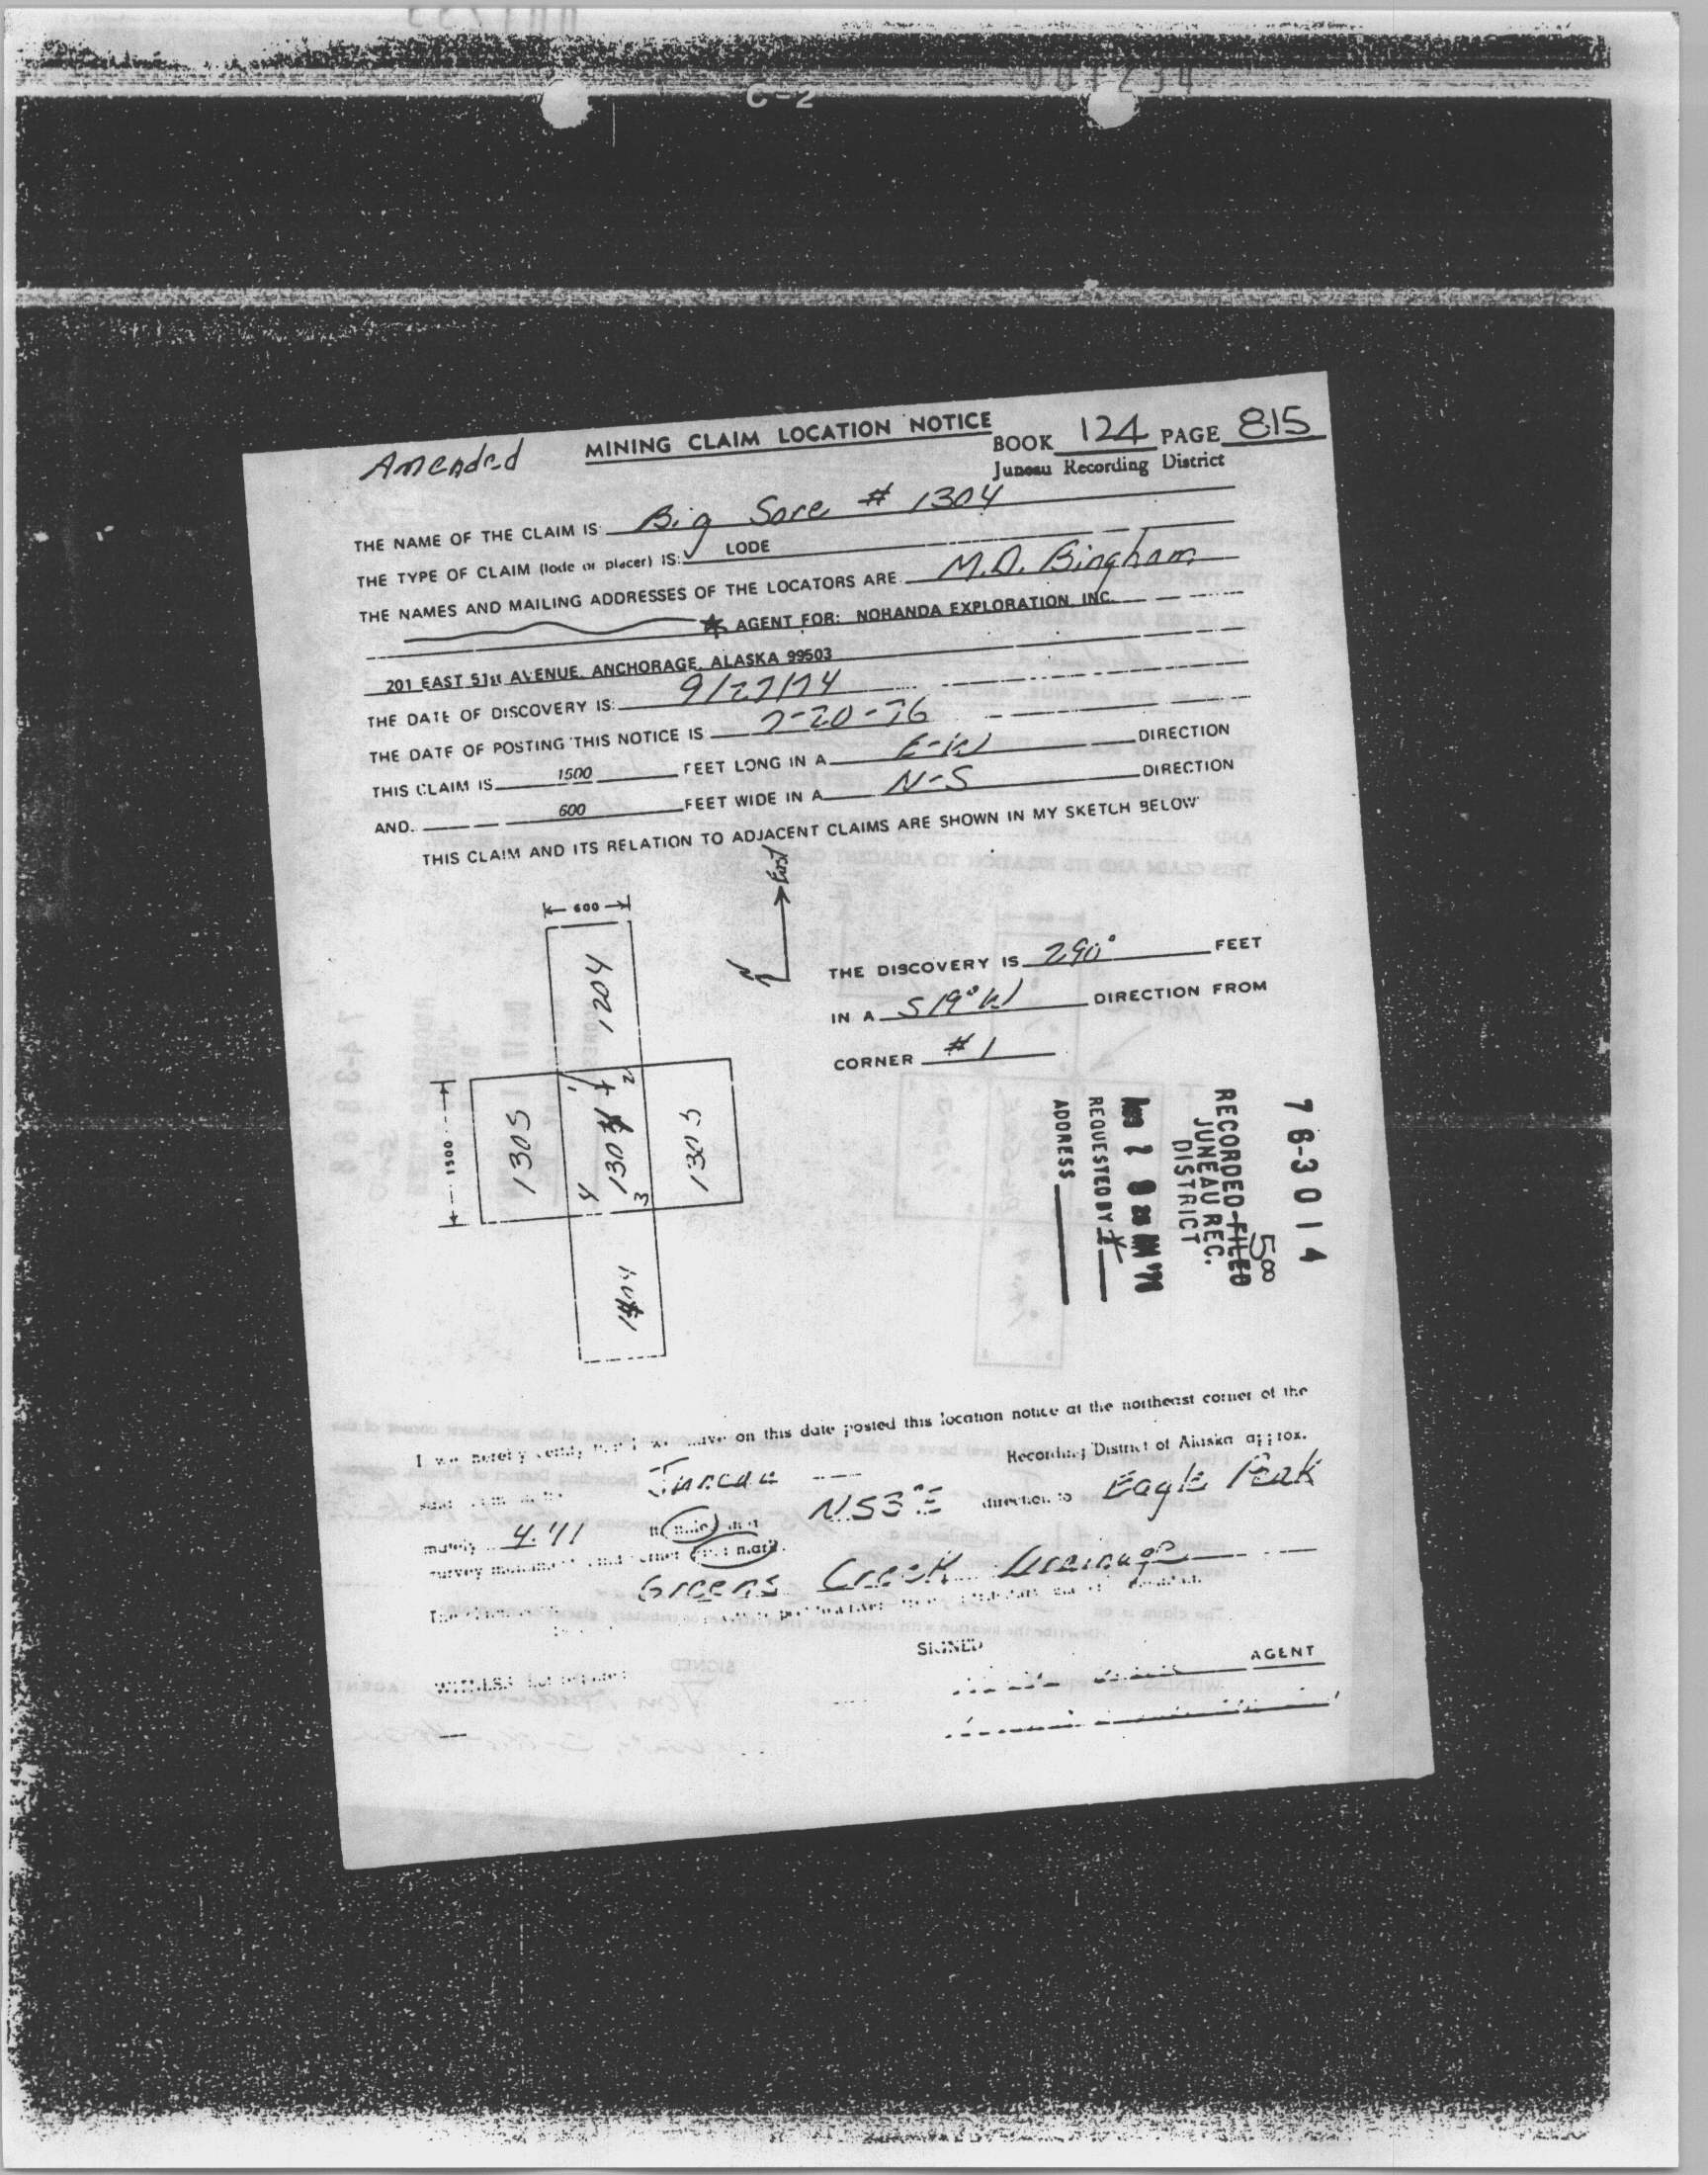 C-2
Amended
MINING CLAIM LOCATION NOTICE
BOOK 124 PAGE 815
Juneau Recording District
THE NAME OF THE CLAIM IS: Big Sore # 1304
THE TYPE OF CLAIM (lode or placer) IS: LODE
THE NAMES AND MAILING ADDRESSES OF THE LOCATORS ARE M.D. Bingham
AGENT FOR: NORANDA EXPLORATION, INC.
201 EAST 51st AVENUE, ANCHORAGE, ALASKA 99503
THE DATE OF DISCOVERY IS: 9/27/74
THE DATE OF POSTING THIS NOTICE IS 7-20-76
THIS CLAIM IS 1500 FEET LONG IN A E-W DIRECTION
AND 600 FEET WIDE IN A N-S DIRECTION
THIS CLAIM AND ITS RELATION TO ADJACENT CLAIMS ARE SHOWN IN MY SKETCH BELOW
600
East
N
1204
THE DISCOVERY IS 290° FEET
IN A S19°W DIRECTION FROM
CORNER # 1
1500
1305
1 2
1304
4 3
1303
1404
76-3014
5 00
RECORDED-FILED
JUNEAU REC.
DISTRICT
REQUESTED BY
ADDRESS
I we hereby certify that I we have on this date posted this location notice at the northeast corner of the
Juneau Recording District of Alaska approx.
mately 4.41 N53°E direction to Eagle Peak
survey
Greens Creek Drainage
SIGNED
WITNESS
AGENT